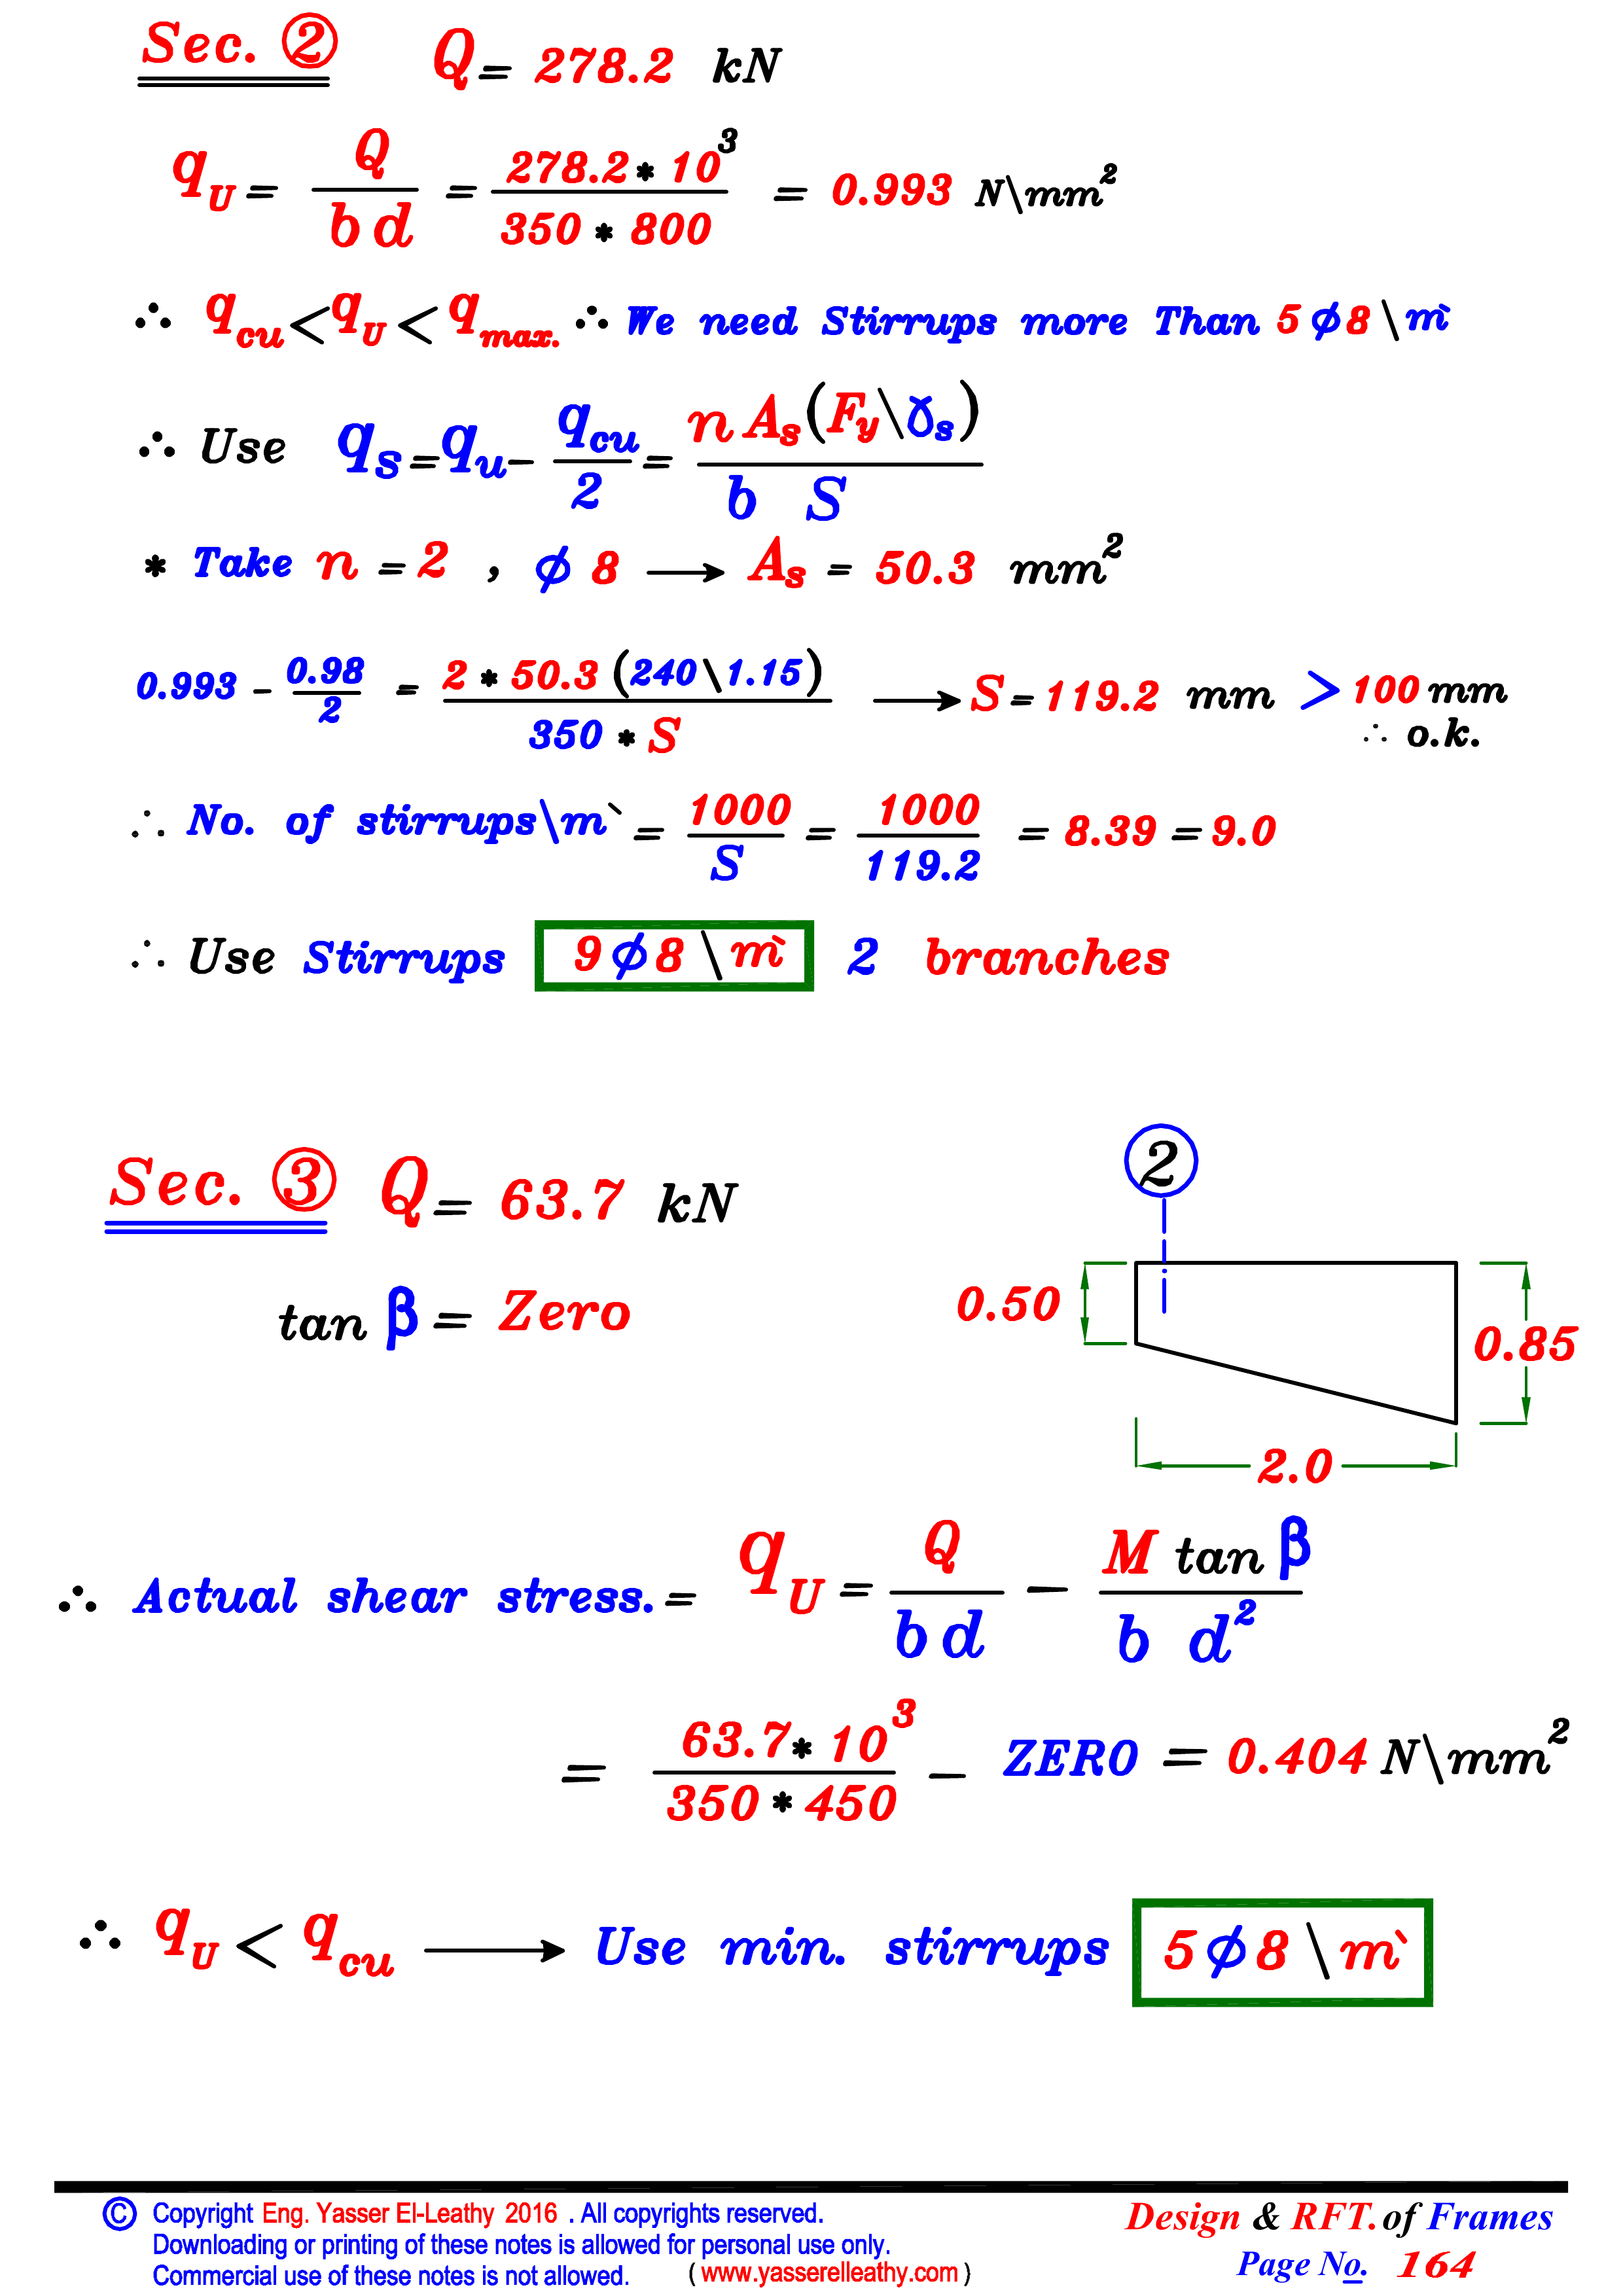 Sec. ② Q = 278.2 kN
q_U = Q / b d = 278.2 * 10^3 / 350 * 800 = 0.993 N\mm^2
∴ q_cu < q_U < q_max. ∴ We need Stirrups more Than 5 ϕ 8 \ m`
∴ Use q_s = q_u - q_cu / 2 = n A_s (F_y \ γ_s) / b S
* Take n = 2 , ϕ 8 → A_s = 50.3 mm^2
0.993 - 0.98 / 2 = 2 * 50.3 (240 \ 1.15) / 350 * S → S = 119.2 mm > 100 mm
∴ o.k.
∴ No. of stirrups\m` = 1000 / S = 1000 / 119.2 = 8.39 = 9.0
∴ Use Stirrups 9 ϕ 8 \ m` 2 branches
Sec. ③ Q = 63.7 kN
tan β = Zero
②
0.50
0.85
2.0
∴ Actual shear stress. = q_U = Q / b d - M tan β / b d^2
= 63.7 * 10^3 / 350 * 450 - ZERO = 0.404 N\mm^2
∴ q_U < q_cu → Use min. stirrups 5 ϕ 8 \ m`
© Copyright Eng. Yasser El-Leathy 2016 . All copyrights reserved.
Downloading or printing of these notes is allowed for personal use only.
Commercial use of these notes is not allowed. ( www.yasserelleathy.com )
Design & RFT. of Frames
Page No. 164